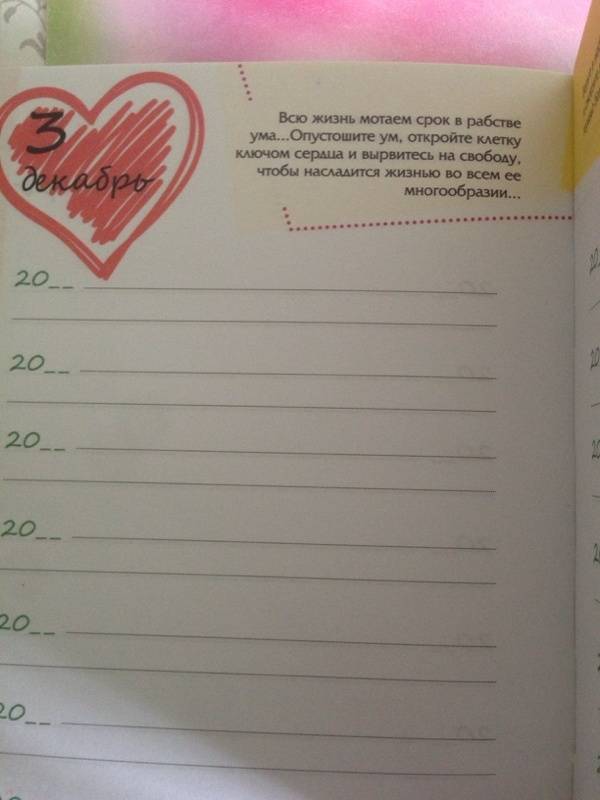 3
декабрь
Всю жизнь мотаем срок в рабстве
ума...Опустошите ум, откройте клетку
ключом сердца и вырвитесь на свободу,
чтобы насладится жизнью во всем ее
многообразии...
20__
20__
20__
20__
20__
20__